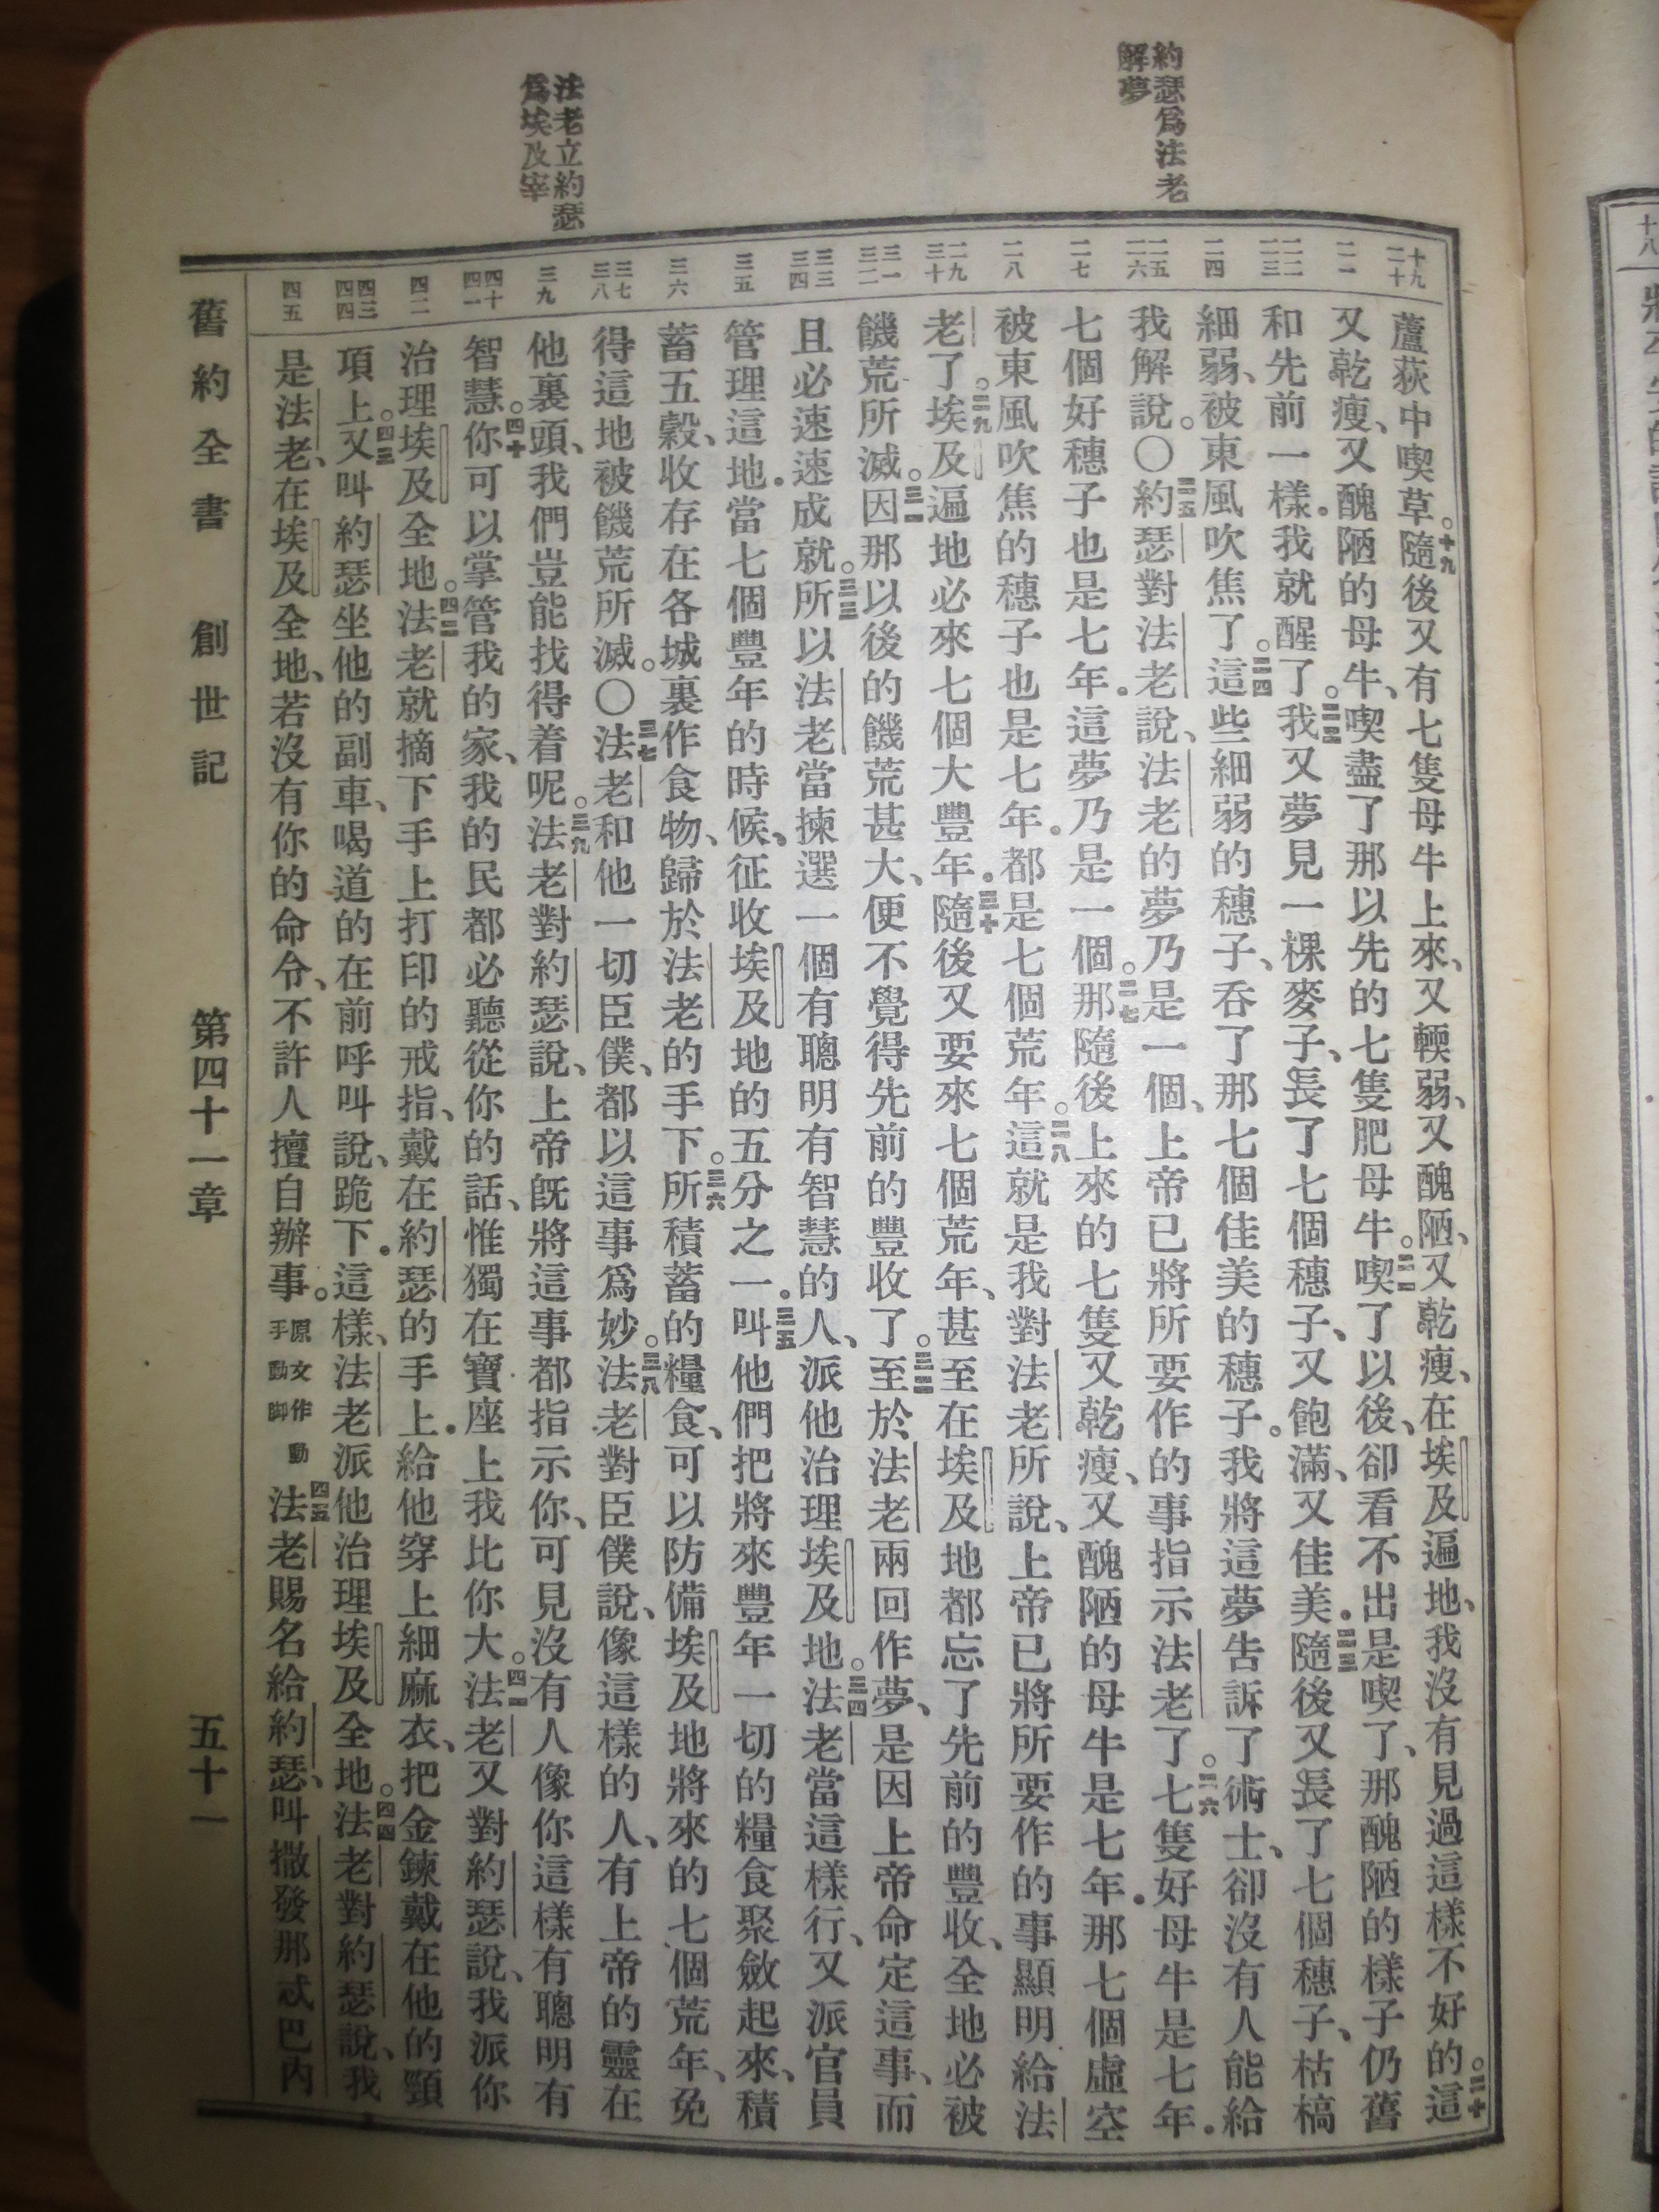 約瑟爲法老
解夢
法老立約瑟
爲埃及宰
十九
二十
二一
二二
二三
二四
二五
二六
二七
二八
二九
三十
三一
三二
三三
三四
三五
三六
三七
三八
三九
四十
四一
四二
四三
四四
四五
蘆荻中喫草。十九隨後又有七隻母牛上來、又輭弱、又醜陋、又乾瘦、在埃及遍地、我沒有見過這樣不好的。二十這
又乾瘦、又醜陋的母牛、喫盡了那以先的七隻肥母牛。二一喫了以後、卻看不出是喫了、那醜陋的樣子仍舊
和先前一樣.我就醒了。二二我又夢見一棵麥子、長了七個穗子、又飽滿、又佳美.二三隨後又長了七個穗子、枯槁
細弱、被東風吹焦了。二四這些細弱的穗子、吞了那七個佳美的穗子。我將這夢告訴了術士、卻沒有人能給
我解說。〇二五約瑟對法老說、法老的夢乃是一個、上帝已將所要作的事指示法老了。二六七隻好母牛是七年.
七個好穗子也是七年.這夢乃是一個。二七那隨後上來的七隻又乾瘦、又醜陋的母牛是七年.那七個虛空
被東風吹焦的穗子也是七年.都是七個荒年。二八這就是我對法老所說、上帝已將所要作的事顯明給法
老了。二九埃及遍地必來七個大豐年.三十隨後又要來七個荒年、甚至在埃及地都忘了先前的豐收、全地必被
饑荒所滅。三一因那以後的饑荒甚大、便不覺得先前的豐收了。三二至於法老兩回作夢、是因上帝命定這事、而
且必速速成就。三三所以法老當揀選一個有聰明有智慧的人、派他治理埃及地。三四法老當這樣行、又派官員
管理這地.當七個豐年的時候、征收埃及地的五分之一.三五叫他們把將來豐年一切的糧食聚斂起來、積
蓄五穀、收存在各城裏作食物、歸於法老的手下。三六所積蓄的糧食、可以防備埃及地將來的七個荒年、免
得這地被饑荒所滅。〇三七法老和他一切臣僕、都以這事爲妙。三八法老對臣僕說、像這樣的人、有上帝的靈在
他裏頭、我們豈能找得着呢。三九法老對約瑟說、上帝旣將這事都指示你、可見沒有人像你這樣有聰明有
智慧。四十你可以掌管我的家、我的民都必聽從你的話、惟獨在寶座上我比你大。四一法老又對約瑟說、我派你
治理埃及全地。四二法老就摘下手上打印的戒指、戴在約瑟的手上.給他穿上細麻衣、把金鍊戴在他的頸
項上。四三又叫約瑟坐他的副車、喝道的在前呼叫說、跪下.這樣、法老派他治理埃及全地。四四法老對約瑟說、我
是法老、在埃及全地、若沒有你的命令、不許人擅自辦事。原文作動手動脚四五法老賜名給約瑟、叫撒發那忒巴內
舊約全書 創世記 第四十一章 五十一
十八